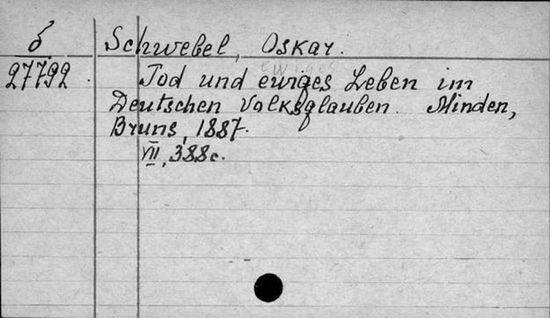 б Schwebel, Oskar.
27792. Tod und ewiges Leben im
Deutschen Volksglauben. Minden,
Bruns, 1887.
VII, 388c.